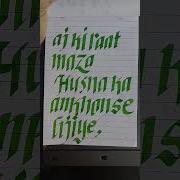 aj ki raat
maza
Husna ka
ankhon se
lijiye.